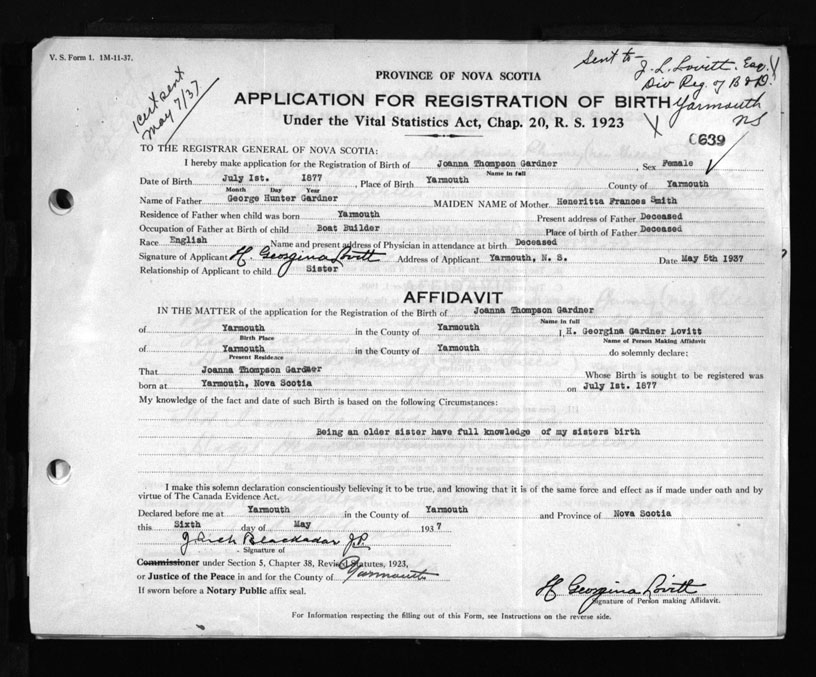 V. S. Form 1. 1M-11-37.
1 Cert sent
May 7/37
Sent to J. L. Lovitt. Esq.
Div Reg. of B & D.
Yarmouth
NS
PROVINCE OF NOVA SCOTIA
APPLICATION FOR REGISTRATION OF BIRTH
Under the Vital Statistics Act, Chap. 20, R. S. 1923
C639
TO THE REGISTRAR GENERAL OF NOVA SCOTIA:
I hereby make application for the Registration of Birth of Joanna Thompson Gardner, Sex Female
Name in full
Date of Birth July 1st. 1877, Place of Birth Yarmouth County of Yarmouth
Month Day Year
Name of Father George Hunter Gardner MAIDEN NAME of Mother Heneritta Frances Smith
Residence of Father when child was born Yarmouth Present address of Father Deceased
Occupation of Father at Birth of child Boat Builder Place of birth of Father Deceased
Race English Name and present address of Physician in attendance at birth Deceased
Signature of Applicant H. Georgina Lovitt Address of Applicant Yarmouth, N. S. Date May 5th 1937
Relationship of Applicant to child Sister
AFFIDAVIT
IN THE MATTER of the application for the Registration of the Birth of Joanna Thompson Gardner
Name in full
of Yarmouth in the County of Yarmouth I, H. Georgina Gardner Lovitt
Birth Place Name of Person Making Affidavit
of Yarmouth in the County of Yarmouth do solemnly declare:
Present Residence
That Joanna Thompson Gardner Whose Birth is sought to be registered was
born at Yarmouth, Nova Scotia on July 1st. 1877
My knowledge of the fact and date of such Birth is based on the following Circumstances:
Being an older sister have full knowledge of my sisters birth
I make this solemn declaration conscientiously believing it to be true, and knowing that it is of the same force and effect as if made under oath and by
virtue of The Canada Evidence Act.
Declared before me at Yarmouth in the County of Yarmouth and Province of Nova Scotia
this Sixth day of May 1937
Blackadar J.P.
Signature of
Commissioner under Section 5, Chapter 38, Revised Statutes, 1923,
or Justice of the Peace in and for the County of Yarmouth
If sworn before a Notary Public affix seal.
H Georgina Lovitt
Signature of Person making Affidavit.
For Information respecting the filling out of this Form, see Instructions on the reverse side.